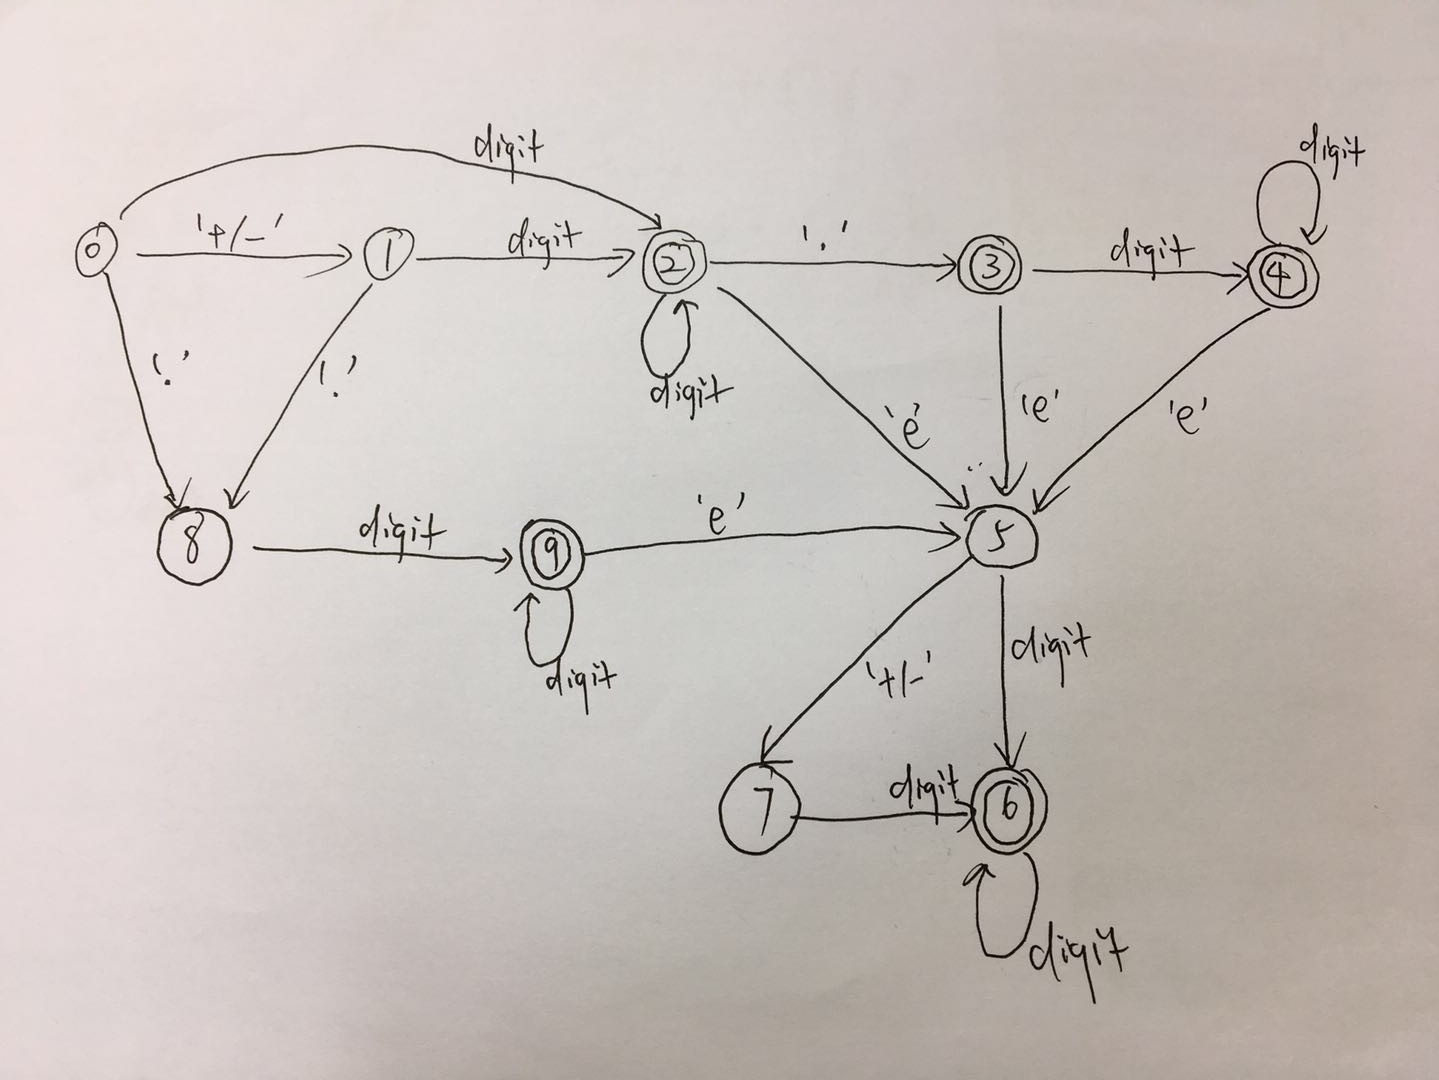 digit
digit
0 '+/-' 1 digit 2 '.' 3 digit 4
'.' '.' digit 'e' 'e' 'e'
8 digit 9 'e' 5
digit '+/-' digit
7 digit 6
digit